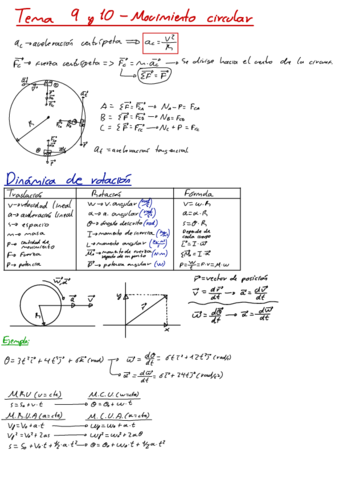 Tema 9 y 10 - Movimiento circular
ac → aceleración centrípeta ⇒ ac = v²/R
Fc → fuerza centrípeta => Fc = m·ac → Se dirige hacia el centro de la circun
ΣF = F
A = ΣF = FcA → NA - P = FcA
B = ΣF = FcB → NB = FcB
C = ΣF = FcC → NC + P = FcC
at = aceleración tangencial
Dinámica de rotación
Traslación Rotación Fórmula
v → velocidad lineal W → v. angular v = w·R
a → aceleración lineal α → a. angular a = α·R
s → espacio θ → ángulo descrito (rad) s = θ·R
m → masa I → momento de inercia Depende de cada cuerpo
p → cantidad de movimiento L → momento angular L = I·ω
F → Fuerza M → momento de fuerza ΣM = I·α
P → potencia P → potencia angular (W)
r = vector de posición
v = dr/dt → a = dv/dt
ω = dθ/dt → α = dω/dt
Ejemplo:
θ = 3t²i + 4t³j + 6k (rad) → ω = dθ/dt = 6ti + 12t²j (rad/s)
α = dω/dt = 6i + 24tj (rad/s²)
M.R.U (v=cte) M.C.U (w=cte)
s = s₀ + v·t → θ = θ₀ + w·t
M.R.U.A (a=cte) M.C.U.A (α=cte)
Vf = V₀ + a·t → wf = w₀ + α·t
Vf² = V₀² + 2as → wf² = w₀² + 2αθ
s = s₀ + V₀·t + ½·a·t² → θ = θ₀ + w₀·t + ½·α·t²